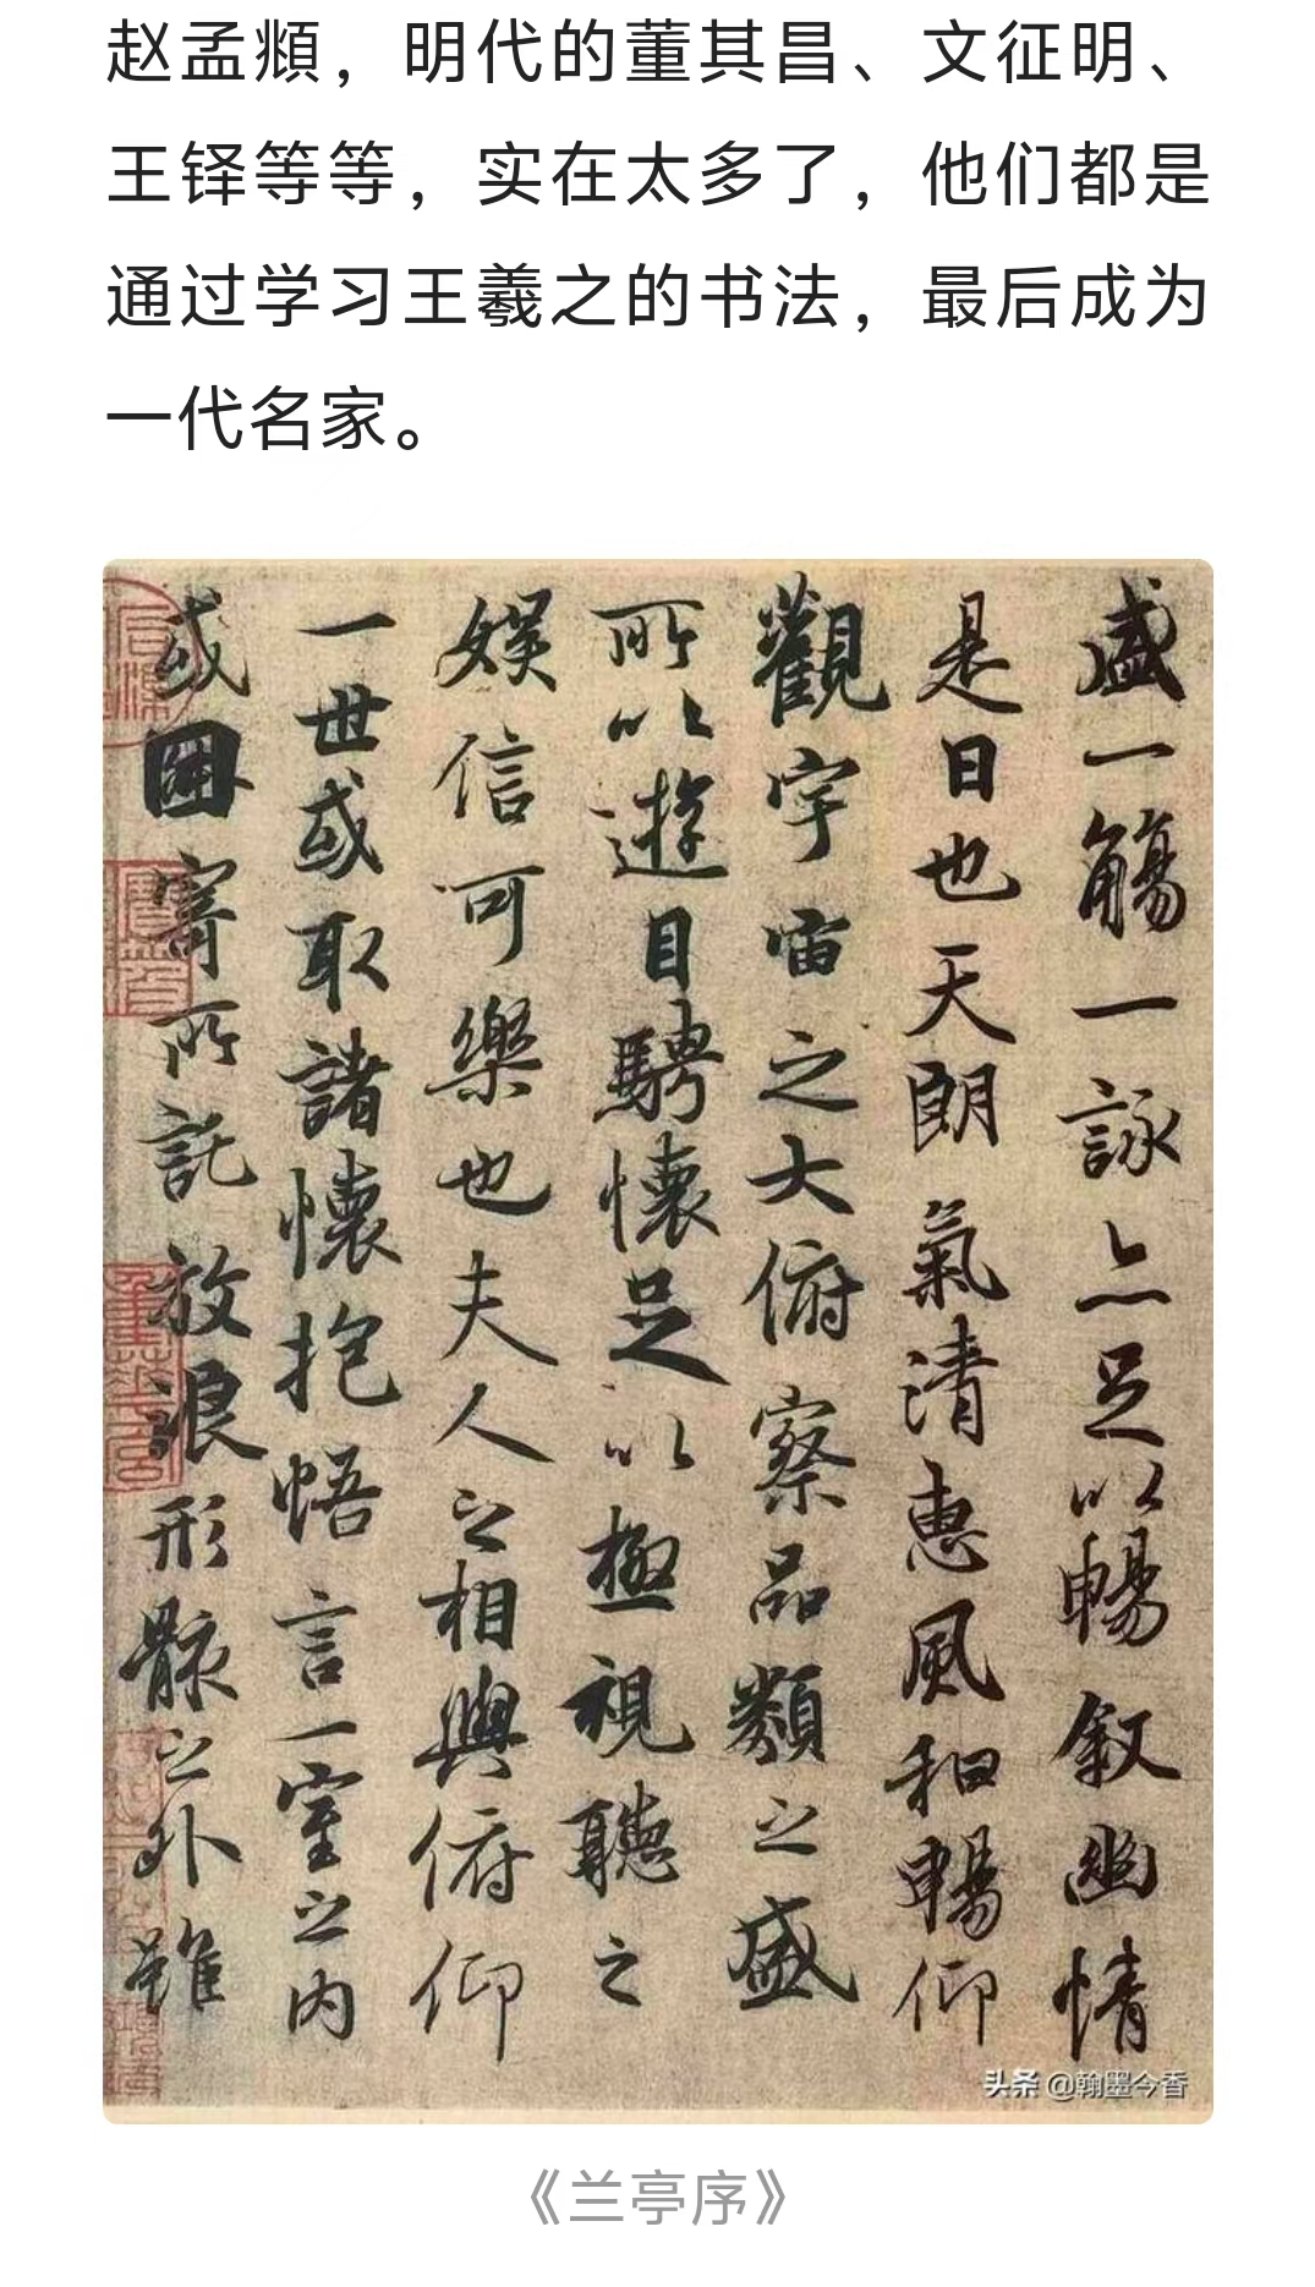 赵孟頫，明代的董其昌、文征明、
王铎等等，实在太多了，他们都是
通过学习王羲之的书法，最后成为
一代名家。
盛一觴一詠亦足以暢叙幽情
是日也天朗氣清惠風和暢仰
觀宇宙之大俯察品類之盛
所以遊目騁懷足以極視聽之
娱信可樂也夫人之相與俯仰
一世或取諸懷抱悟言一室之内
或因寄所託放浪形骸之外雖
头条 @翰墨今香
《兰亭序》